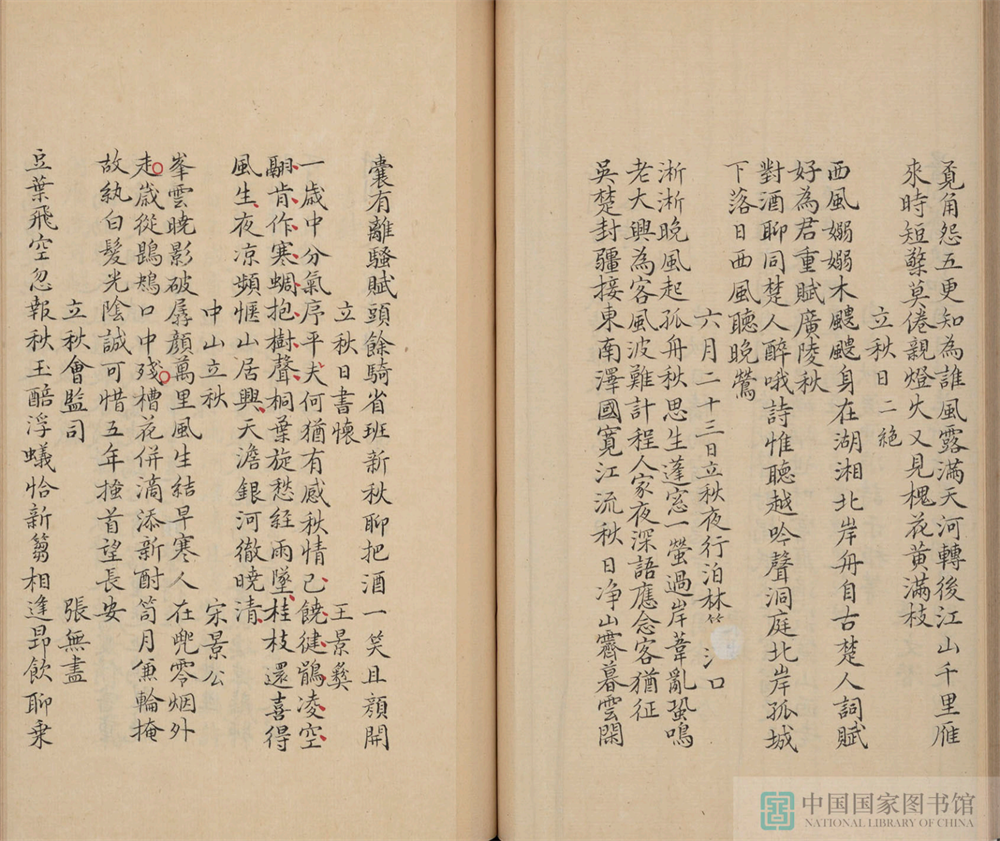 覔角怨五更知為誰風露滿天河轉後江山千里雁
來時短檠莫倦親燈火又見槐花黃滿枝
立秋日二絶
西風嫋嫋木颼颼身在湖湘北岸舟自古楚人詞賦
好為君重賦廣陵秋
對酒聊同楚人醉哦詩惟聽越吟聲洞庭北岸孤城
下落日西風聽晚鶯
六月二十三日立秋夜行泊林口
淅淅晚風起孤舟秋思生蓬窓一螢過岸葦亂蛩鳴
老大興為客風波難計程人家夜深語應念客猶征
吳楚封疆接東南澤國寬江流秋日净山霽暮雲閑
囊有離騷賦頭餘騎省班新秋聊把酒一笑且顔開
立秋日書懷 王景彝
一歲中分氣序平夫何猶有感秋情已饒健鶻凌空
翮肯作寒蜩抱樹聲桐葉旋愁経雨墜桂枝還喜得
風生夜凉頻愜山居興天澹銀河徹曉清
中山立秋 宋景公
峯雲曉影破孱顔萬里風生結早寒人在兜零烟外
走歲從鶗鴂口中殘槽花併滴添新酎笥月魚輪掩
故紈白髮光陰誠可惜五年搔首望長安
立秋會監司 張無盡
豆葉飛空忽報秋玉醅浮蟻恰新篘相逢昂飲聊乗
中国国家图书馆
NATIONAL LIBRARY OF CHINA